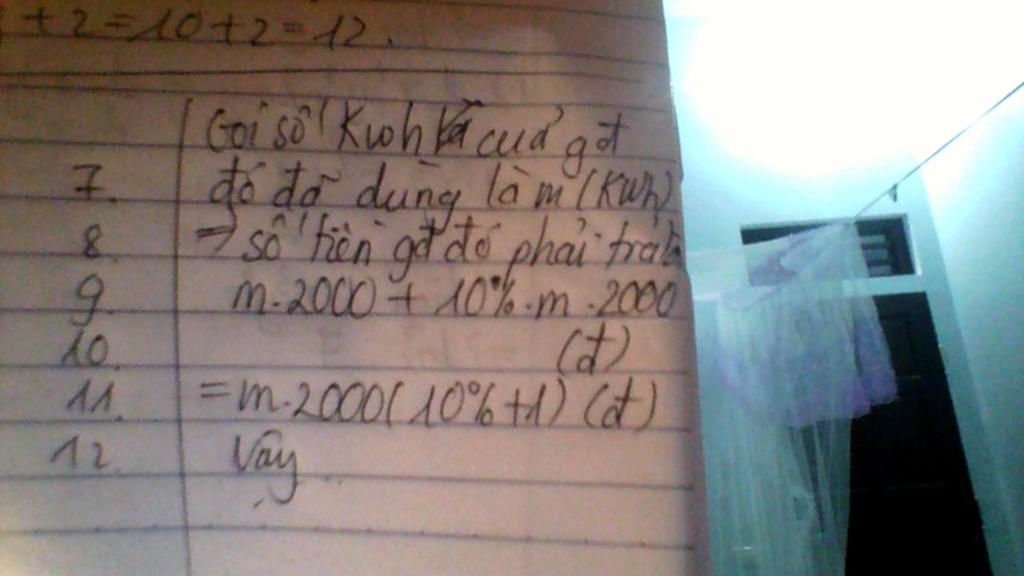 + 2 = 10 + 2 = 12.
Gọi số Kwh của gđ
7. đó đã dùng là m (Kwh)
8. => số tiền gđ đó phải trả là
9. m.2000 + 10%.m.2000
10. (đ)
11. = m.2000(10%+1) (đ)
12. Vậy